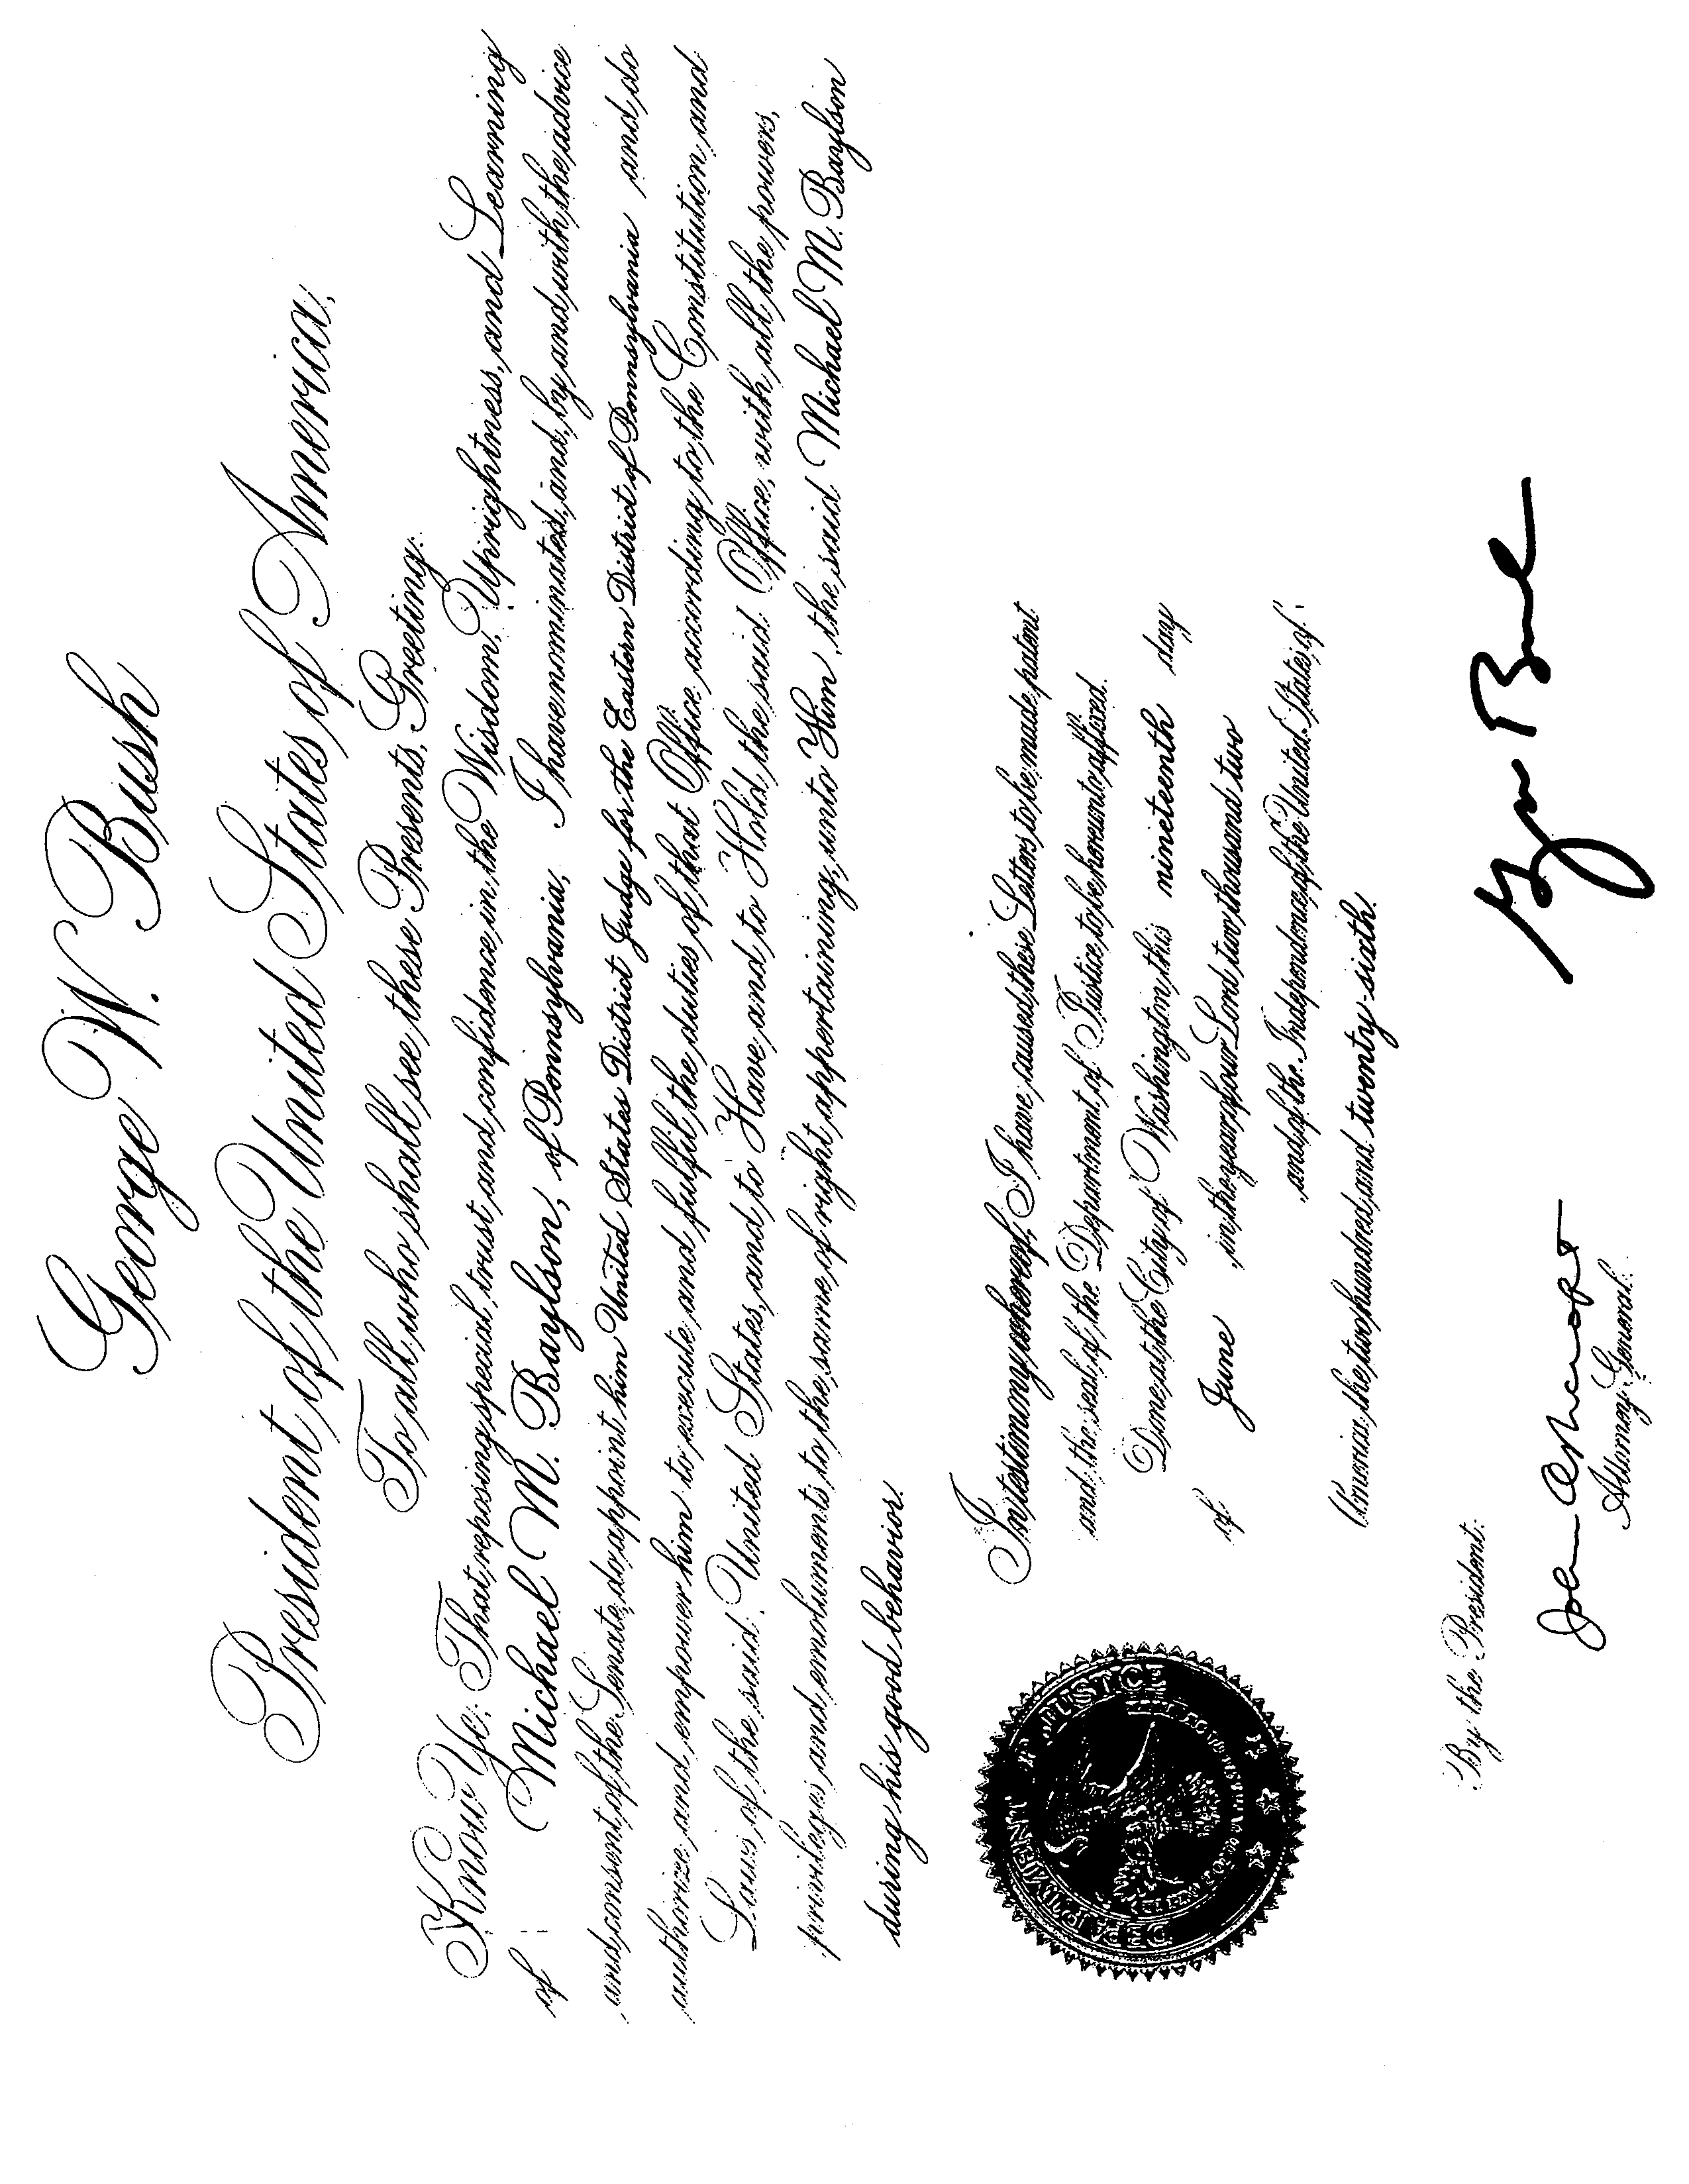 George W. Bush
President of the United States of America,
To all who shall see these Presents, Greeting:
Know Ye: That reposing special trust and confidence in the Wisdom, Uprightness, and Learning
of Michael M. Baylson, of Pennsylvania, I have nominated, and, by and with the advice
and consent of the Senate, do appoint him United States District Judge for the Eastern District of Pennsylvania and do
authorize and empower him to execute and fulfil the duties of that Office according to the Constitution and
Laws of the said United States, and to Have and to Hold the said Office, with all the powers,
privileges and emoluments to the same of right appertaining, unto Him, the said Michael M. Baylson
during his good behavior.
In testimony whereof, I have caused these Letters to be made patent
and the seal of the Department of Justice to be hereunto affixed.
Done at the City of Washington, this nineteenth day
of June in the year of our Lord two thousand two
and of the Independence of the United States of
America the two hundred and twenty-sixth.
DEPARTMENT OF JUSTICE
By the President:
George Bush
John Ashcroft
Attorney General.